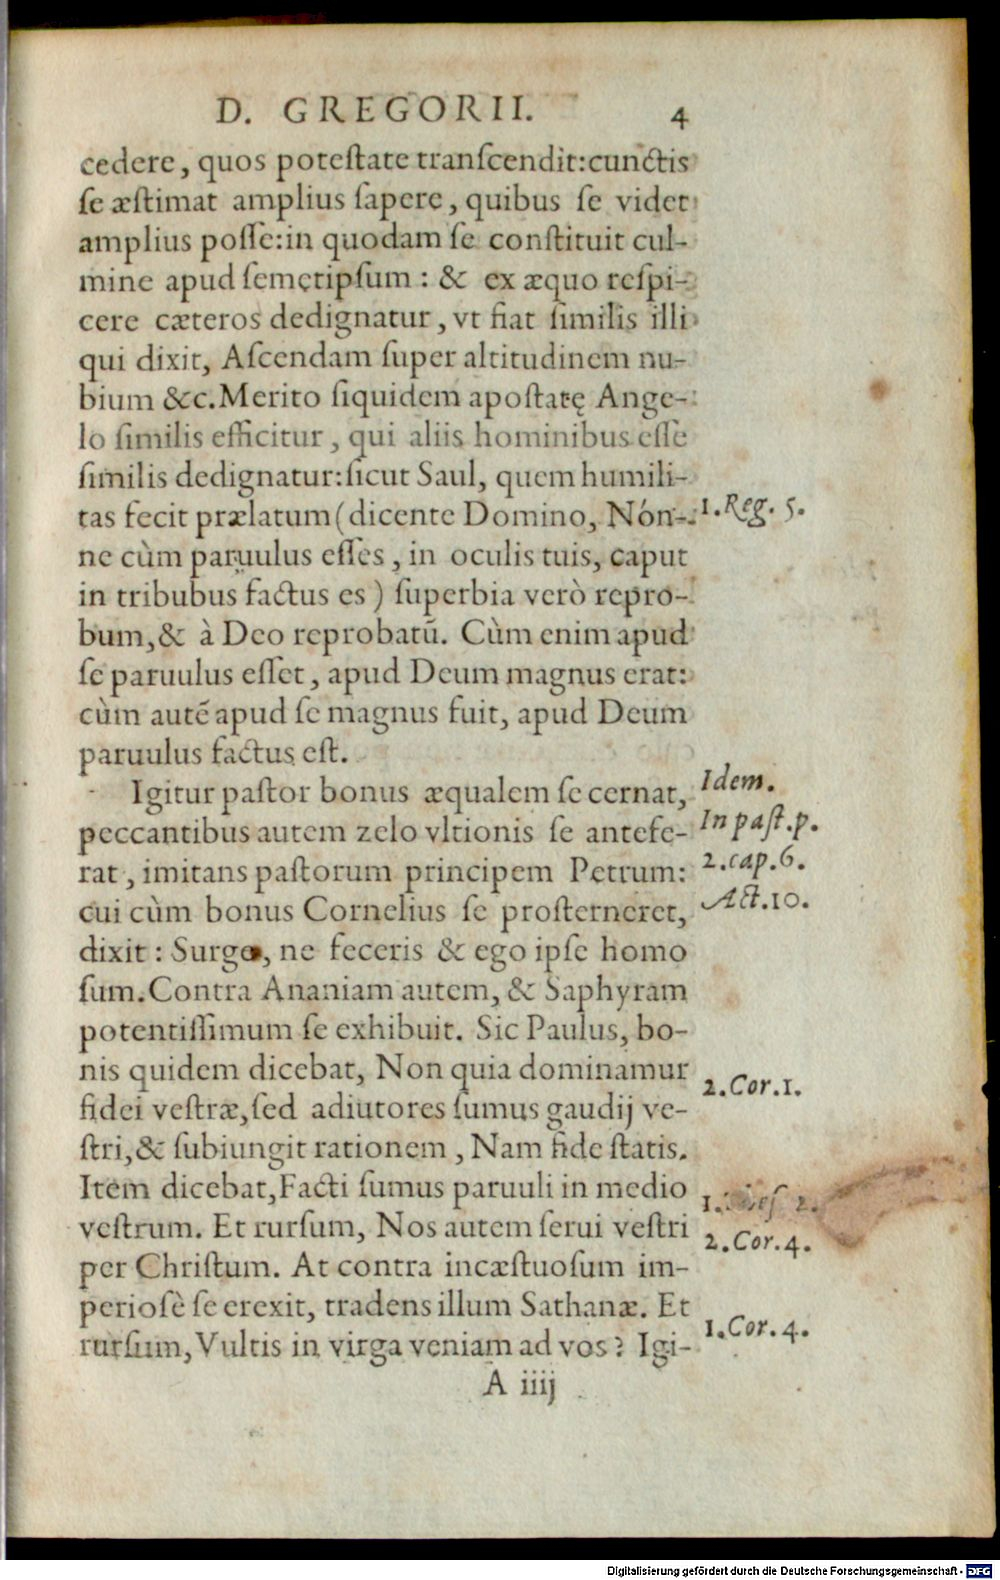 D. GREGORII. 4
cedere, quos poteſtate tranſcendit:cunctis
ſe æſtimat amplius ſapere, quibus ſe videt
amplius poſſe:in quodam ſe conſtituit cul-
mine apud ſemetipſum : & ex æquo reſpi-
cere cæteros dedignatur, vt fiat ſimilis illi
qui dixit, Aſcendam ſuper altitudinem nu-
bium &c. Merito ſiquidem apoſtatę Ange-
lo ſimilis efficitur, qui aliis hominibus eſſe
ſimilis dedignatur:ſicut Saul, quem humili-
tas fecit prælatum (dicente Domino, Nón-
1. Reg. 5.
ne cùm paruulus eſſes, in oculis tuis, caput
in tribubus factus es) ſuperbia verò repro-
bum, & à Deo reprobatũ. Cùm enim apud
ſe paruulus eſſet, apud Deum magnus erat:
cùm autẽ apud ſe magnus fuit, apud Deum
paruulus factus eſt.
Igitur paſtor bonus æqualem ſe cernat,
Idem.
peccantibus autem zelo vltionis ſe antefe-
In paſt. p.
rat, imitans paſtorum principem Petrum:
2. cap. 6.
cui cùm bonus Cornelius ſe proſterneret,
Act. 10.
dixit : Surge, ne feceris & ego ipſe homo
ſum. Contra Ananiam autem, & Saphyram
potentiſſimum ſe exhibuit. Sic Paulus, bo-
nis quidem dicebat, Non quia dominamur
2. Cor. 1.
fidei veſtræ, ſed adiutores ſumus gaudij ve-
ſtri, & ſubiungit rationem, Nam fide ſtatis.
Item dicebat, Facti ſumus paruuli in medio
1. 2.
veſtrum. Et rurſum, Nos autem ſerui veſtri
2. Cor. 4.
per Chriſtum. At contra incæſtuoſum im-
perioſè ſe erexit, tradens illum Sathanæ. Et
1. Cor. 4.
rurſum, Vultis in virga veniam ad vos? Igi-
A iiij
Digitalisierung gefördert durch die Deutsche Forschungsgemeinschaft - DFG